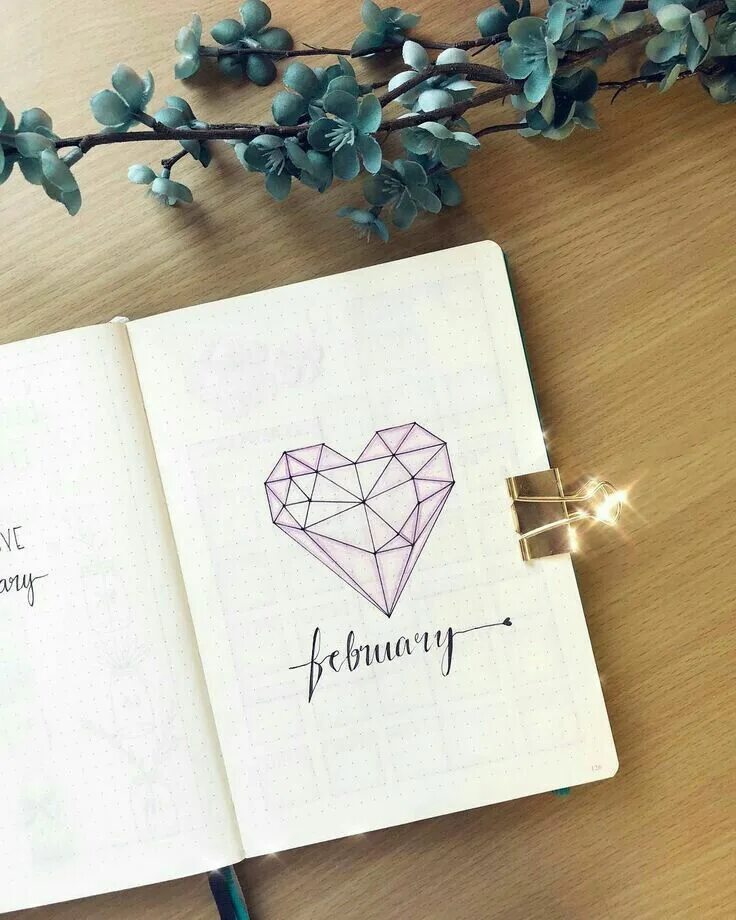 VE
ary
february
126